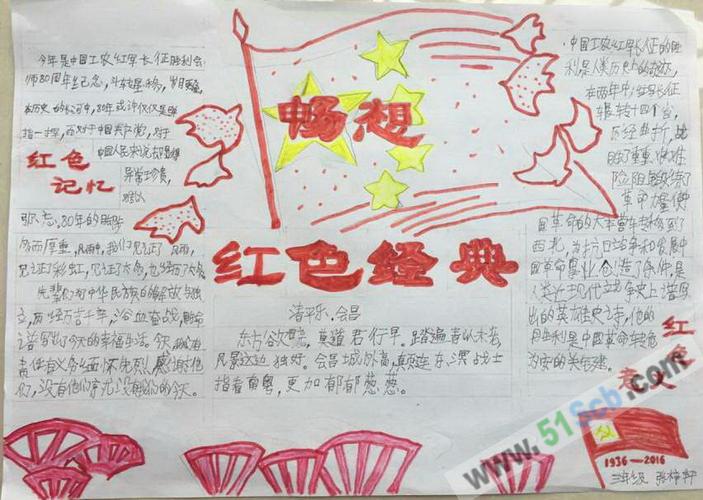 今年是中国工农红军长征胜利会
师80周年纪念,斗转星移,岁月
历史的长河中,80年或许仅仅是
指一挥,而对于中国共产党,对于
中国人民来说却
异常珍贵,
红色
记忆
畅想
红色经典
清平乐.会昌
东方欲晓,莫道君行早。踏遍青山人未老,
风景这边独好。会昌城外高峰,颠连直接东溟。战士
指看南粤,更加郁郁葱葱。
80年的
厚重,风雨中,我们见证了风雨,
见证了彩虹,见证了大务,也经历了大
先辈们为中华民族的解放与独
立,历经万古千年,浴血奋战,
谱写出了今天的幸福生活。今天,
责任有义务缅怀先烈,感谢他
们,没有他们就没有我们的今天。
中国工农红军长征的胜
利是人类历史上的奇迹,
在两年中,红军长征
转战十四个省,
历经曲折,战
胜了重重艰难
险阻,
革命力量,使
国革命的大本营转移到了
西北,为抗日战争和发展中
国革命事业创造了条件,是
人类近现代战争史上谱写
出的英雄史诗,他的
胜利是中国革命转危
为安的关键。
红色
1936-2016
三年级
www.51Scb.com